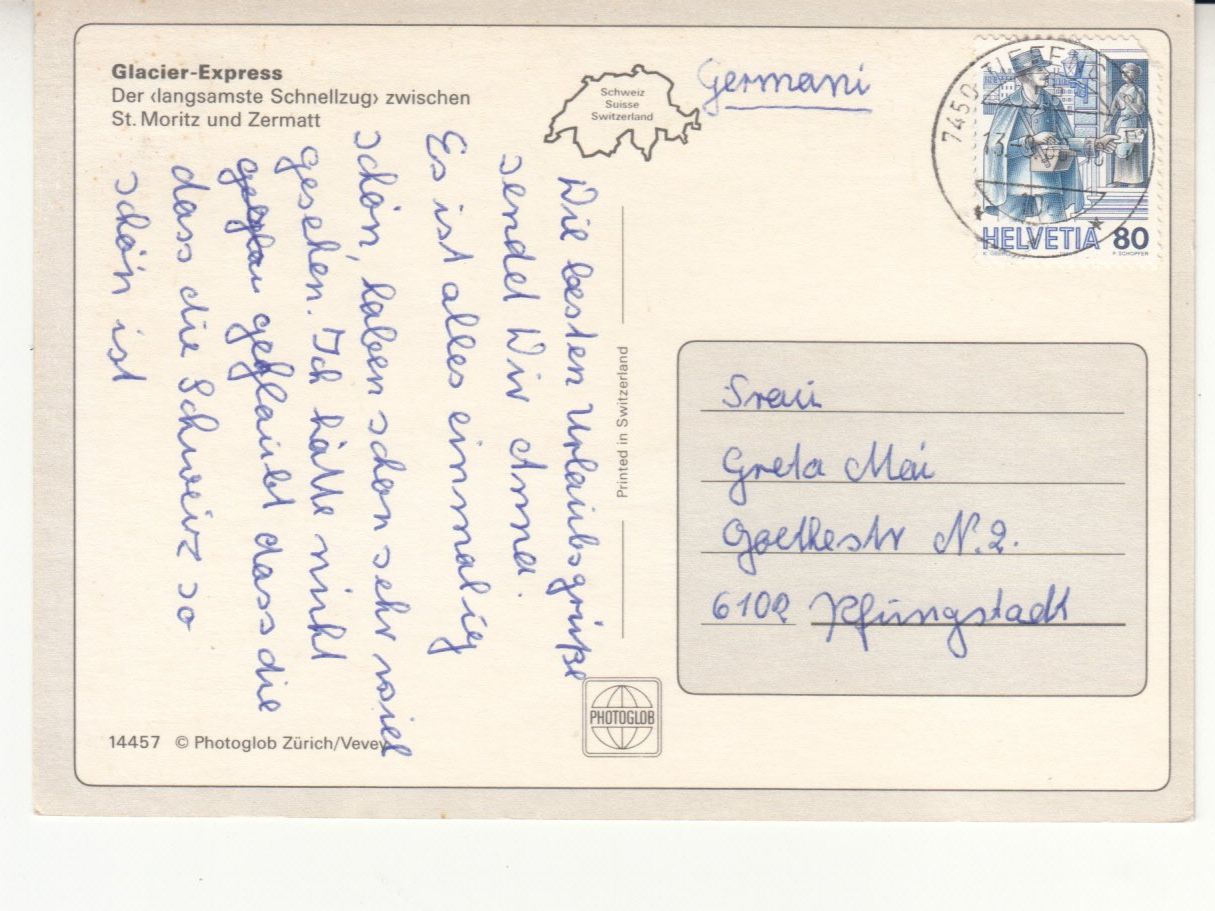 Glacier-Express
Der ‹langsamste Schnellzug› zwischen
St. Moritz und Zermatt
Schweiz
Suisse
Switzerland
Germani
7450
HELVETIA 80
P. SCHOPFER
Die besten Urlaubsgrüße
sendet Wir Anna.
Es ist alles einmalig
schön, haben schon sehr viel
gesehen. Ich hätte nicht
geglaubt dass die
dass die Schweiz so
schön ist
Printed in Switzerland
Frau
Greta Mai
Goethestr N.2.
6102 Pfungstadt
PHOTOGLOB
14457 © Photoglob Zürich/Vevey